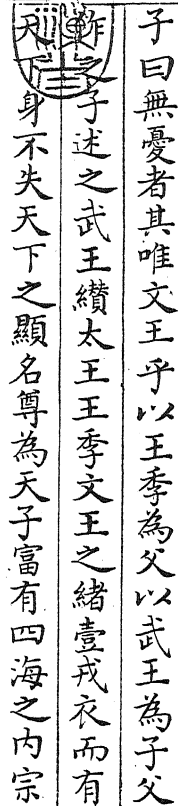 子曰無憂者其唯文王乎以王季為父以武王為子父
作之子述之武王纘太王王季文王之緒壹戎衣而有
天下身不失天下之顯名尊為天子富有四海之內宗